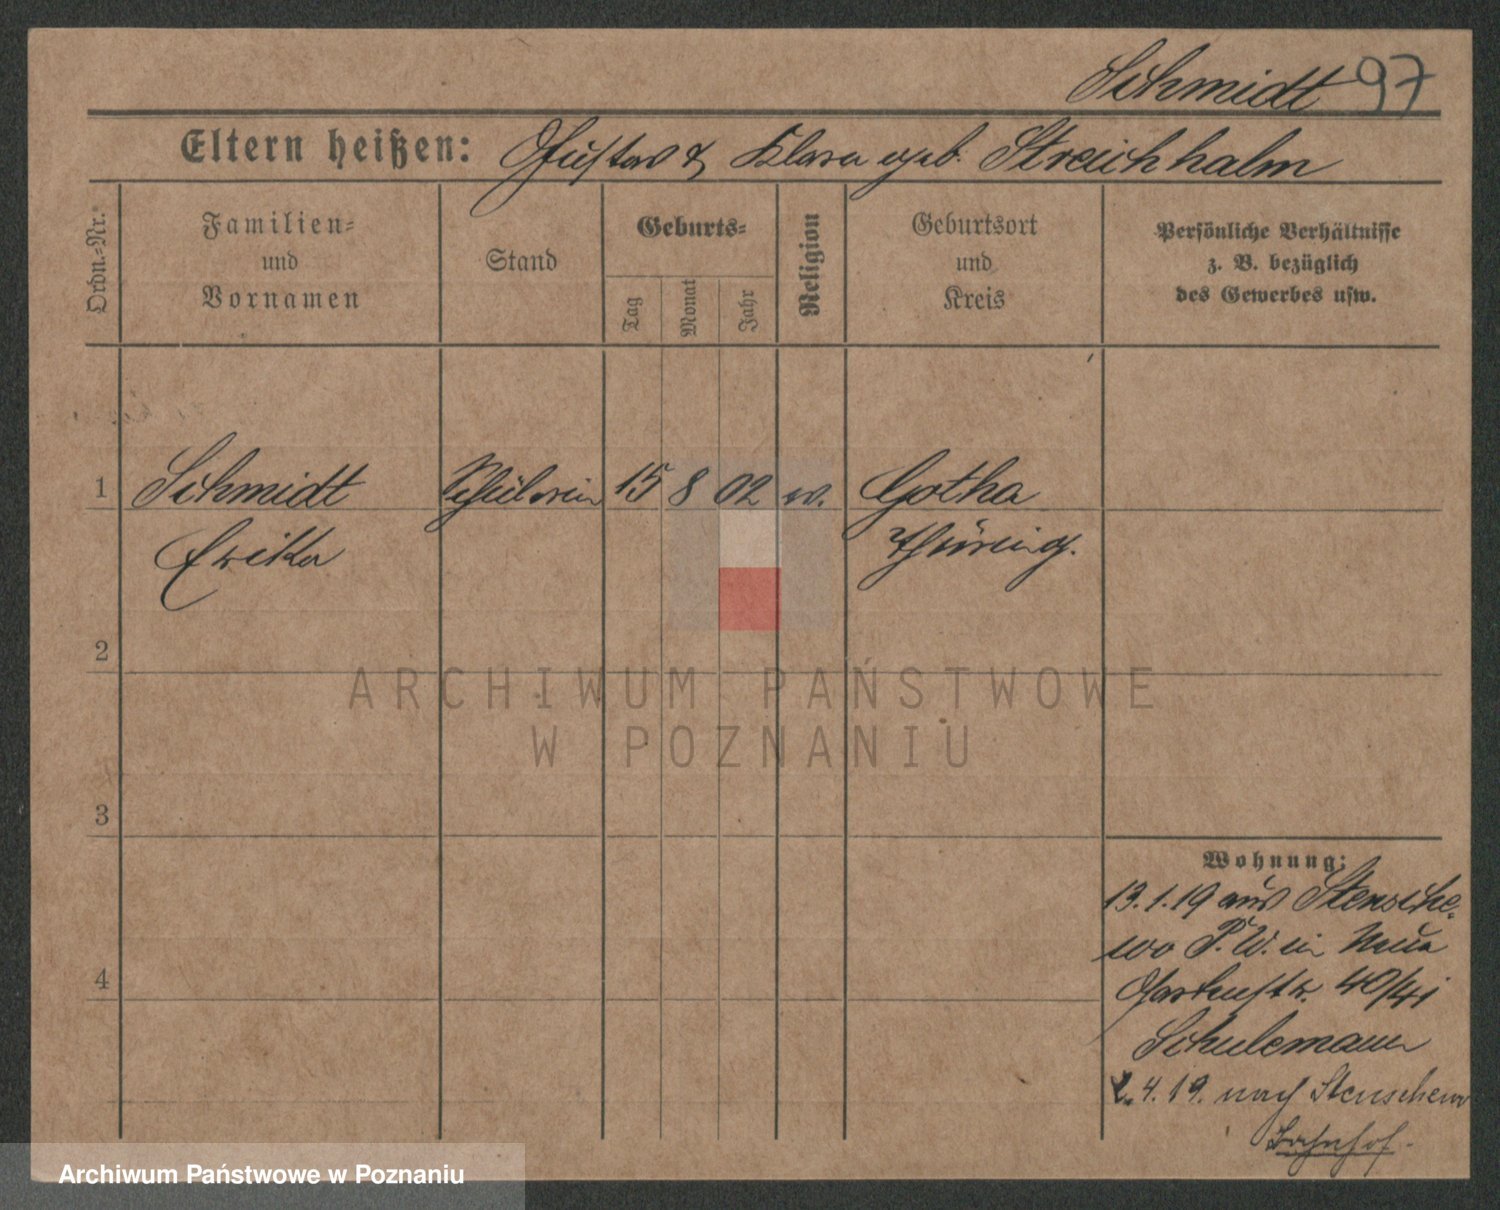 Schmidt 97
Eltern heißen: Gustav & Klara geb. Streichhalm
Ordn.-Nr.
Familien-
und
Vornamen
Stand
Geburts-
Tag
Monat
Jahr
Religion
Geburtsort
und
Kreis
Persönliche Verhältnisse
z. B. bezüglich
des Gewerbes usw.
1 Schmidt Schülerin 15 8 02 ev. Gotha
Erika Thüring.
2
3
4
Wohnung:
13.1.19 aus Stensche-
wo P. W. in Neue
Gartenstr. 40/41
Schulemann
2.4.19. nach Stenschewo
Bahnhof.
ARCHIWUM PAŃSTWOWE
W POZNANIU
Archiwum Państwowe w Poznaniu